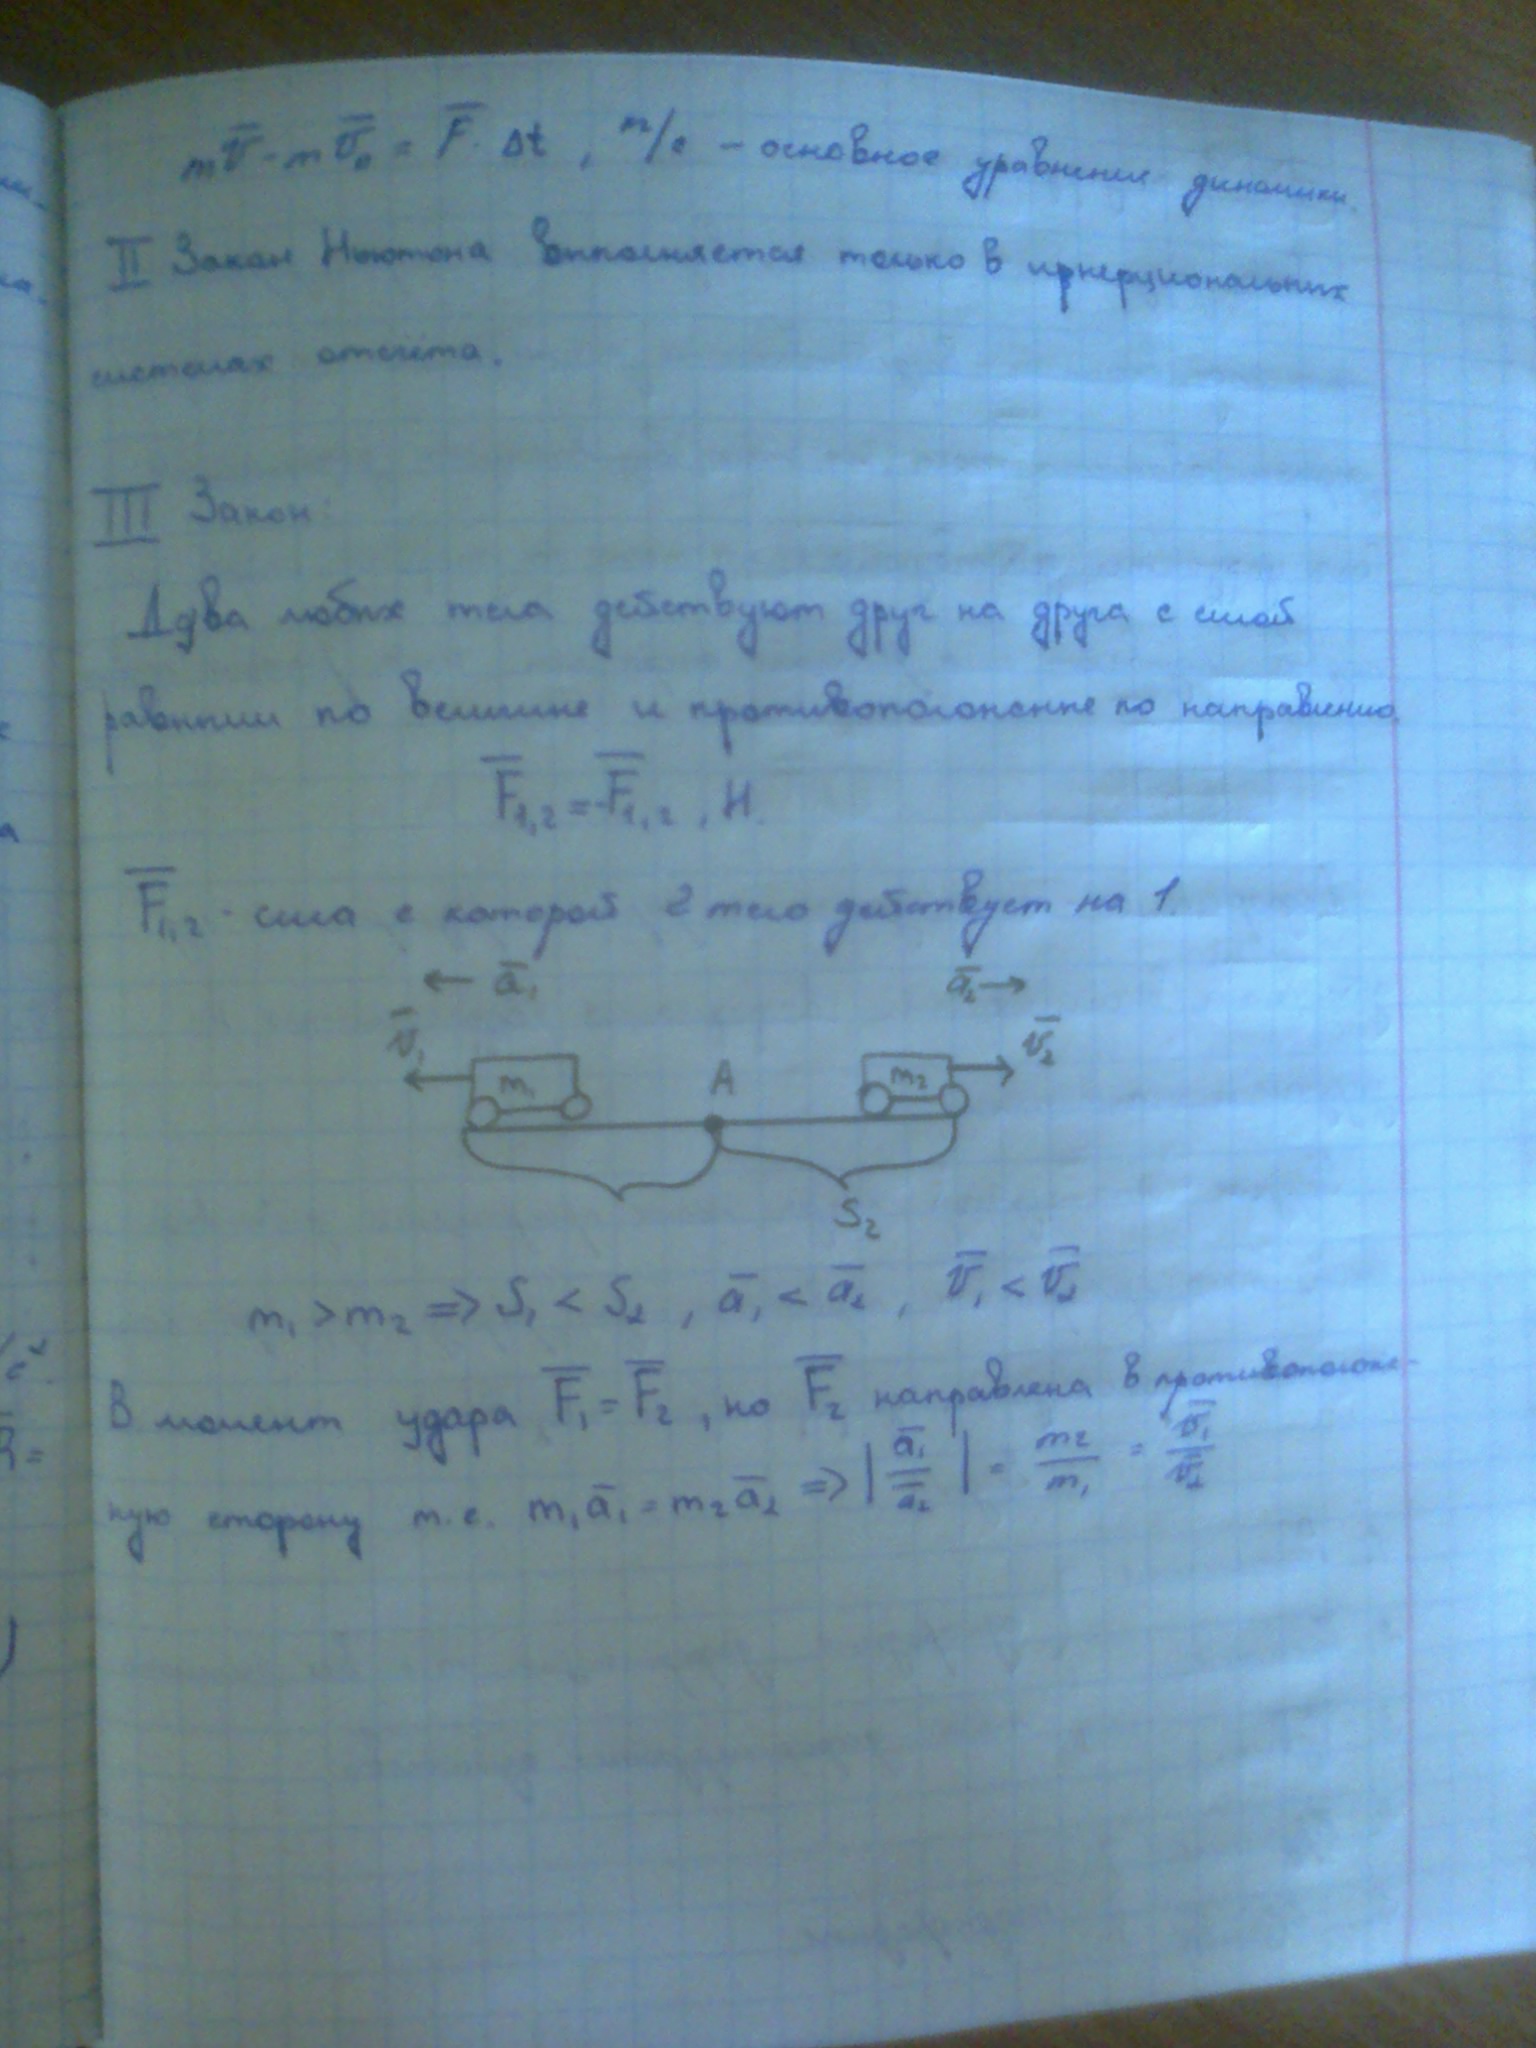 mv̅ - mv̅₀ = F̅ · Δt , м/с – основное уравнение динамики.
II Закон Ньютона выполняется только в инерциональных
системах отсчёта.
III Закон:
Два любых тела действуют друг на друга с силой
равными по величине и противоположные по направлению
F̅₁,₂ = -F̅₁,₂ , Н.
F̅₁,₂ - сила с которой 2 тело действует на 1.
← a̅₁ a̅₂ →
v̅₁ v̅₂
m₁ A m₂
S₂
m₁ > m₂ => S₁ < S₂ , a̅₁ < a̅₂ , v̅₁ < v̅₂
В момент удара F̅₁ = F̅₂ , но F̅₂ направлена в противополож-
ную сторону т.е. m₁a̅₁ = m₂a̅₂ => | a̅₁/a̅₂ | = m₂/m₁ = v̅₁/v̅₂